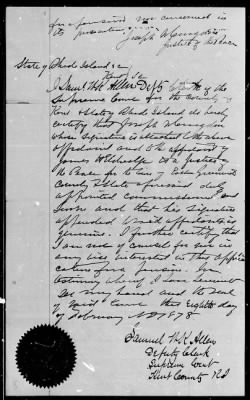 for a pension nor concerned in
its prosecution
Joseph W Congdon
Justice of the Peace
State of Rhode Island &c
Kent Sc
I Saml W K Allen Dept Clerk of the
Supreme Court for the County of
Kent & State Rhode Island do hereby
certify that Joseph W Congdon
whose signature is attached to the above
and to the affidavit of
James is a Justice of
the Peace for the town of East Greenwich
County & State aforesaid duly
appointed commissioned and
sworn and that his signature
appended to said affidavit is
genuine. I further certify that
I am not of counsel for nor in
any wise interested in this appli
cation for a pension. In
testimony whereof I
set my hand and the seal
of said Court this eighth day
of February AD 1878
Samuel W K Allen
Deputy Clerk
Supreme Court
Kent County RI